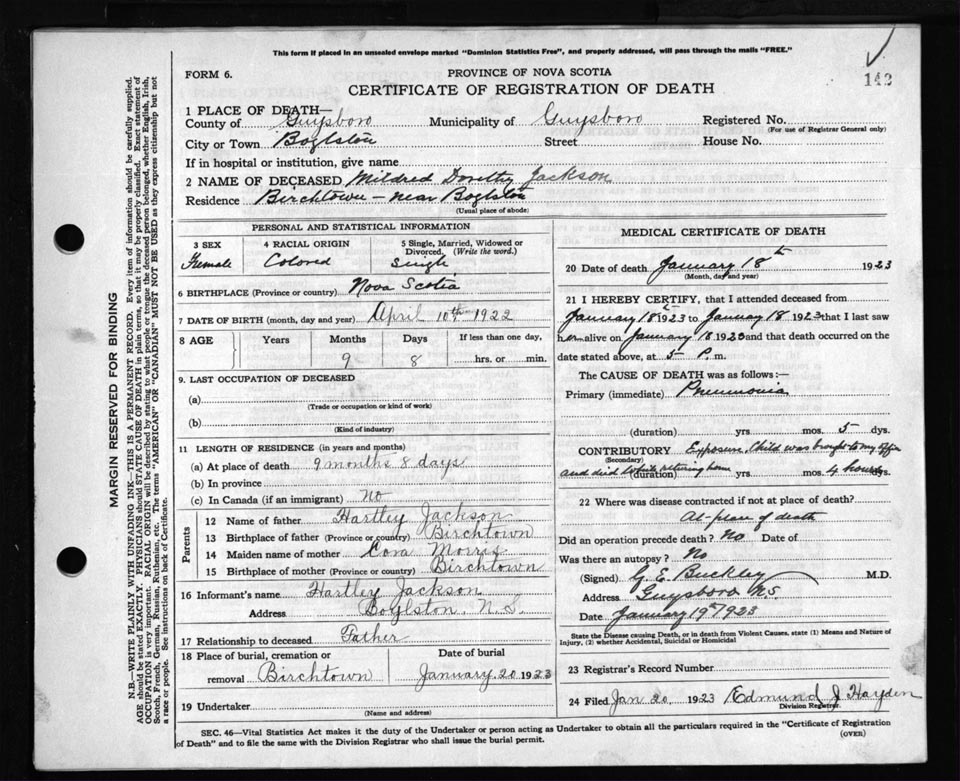 This form if placed in an unsealed envelope marked "Dominion Statistics Free", and properly addressed, will pass through the mails "FREE."
FORM 6.
PROVINCE OF NOVA SCOTIA
142
CERTIFICATE OF REGISTRATION OF DEATH
1 PLACE OF DEATH—
County of Guysboro Municipality of Guysboro Registered No.
(For use of Registrar General only)
City or Town Boylston Street House No.
If in hospital or institution, give name
2 NAME OF DECEASED Mildred Dorothy Jackson
Residence Birchtown - near Boylston
(Usual place of abode)
PERSONAL AND STATISTICAL INFORMATION
3 SEX 4 RACIAL ORIGIN 5 Single, Married, Widowed or
Divorced. (Write the word.)
Female Colored Single
6 BIRTHPLACE (Province or country) Nova Scotia
7 DATE OF BIRTH (month, day and year) April 10th 1922
8 AGE Years Months Days If less than one day,
9 8 hrs. or min.
9. LAST OCCUPATION OF DECEASED
(a)
(Trade or occupation or kind of work)
(b)
(Kind of industry)
11 LENGTH OF RESIDENCE (in years and months)
(a) At place of death 9 months 8 days
(b) In province
(c) In Canada (if an immigrant) No
Parents
12 Name of father Hartley Jackson
13 Birthplace of father (Province or country) Birchtown
14 Maiden name of mother Cora Morris
15 Birthplace of mother (Province or country) Birchtown
16 Informant's name Hartley Jackson
Address Boylston, N.S.
17 Relationship to deceased Father
18 Place of burial, cremation or Date of burial
removal Birchtown January 20 1923
19 Undertaker
(Name and address)
MEDICAL CERTIFICATE OF DEATH
20 Date of death January 18th 1923
(Month, day and year)
21 I HEREBY CERTIFY, that I attended deceased from
January 18 1923 to January 18 1923 that I last saw
her alive on January 18 1923 and that death occurred on the
date stated above, at 5 P. m.
The CAUSE OF DEATH was as follows:—
Primary (immediate) Pneumonia
(duration) yrs. mos. 5 dys.
CONTRIBUTORY Exposure. Child was brought to my office
(Secondary)
and died while returning home (duration) yrs. mos. 4 hours dys.
22 Where was disease contracted if not at place of death?
At place of death
Did an operation precede death? No Date of
Was there an autopsy? No
(Signed) G. E. Buckley M.D.
Address Guysboro NS.
Date January 19th 1923
State the Disease causing Death, or in death from Violent Causes, state (1) Means and Nature of
Injury, (2) whether Accidental, Suicidal or Homicidal
23 Registrar's Record Number
24 Filed Jan 20, 1923 Edmund J Hayden
Division Registrar.
SEC. 46—Vital Statistics Act makes it the duty of the Undertaker or person acting as Undertaker to obtain all the particulars required in the "Certificate of Registration
of Death" and to file the same with the Division Registrar who shall issue the burial permit.
(OVER)
MARGIN RESERVED FOR BINDING
N.B.—WRITE PLAINLY WITH UNFADING INK—THIS IS A PERMANENT RECORD. Every item of information should be carefully supplied.
AGE should be stated EXACTLY. PHYSICIANS should STATE CAUSE OF DEATH in plain terms, so that it may be properly classified. Exact statement of
OCCUPATION is very important. RACIAL ORIGIN will be described by stating to what people or tongue the deceased person belonged, whether English, Irish,
Scotch, French, German, Russian, Ruthenian, etc. The terms "AMERICAN" or "CANADIAN" MUST NOT BE USED as they express citizenship but not
a race or people. See instructions on back of Certificate.